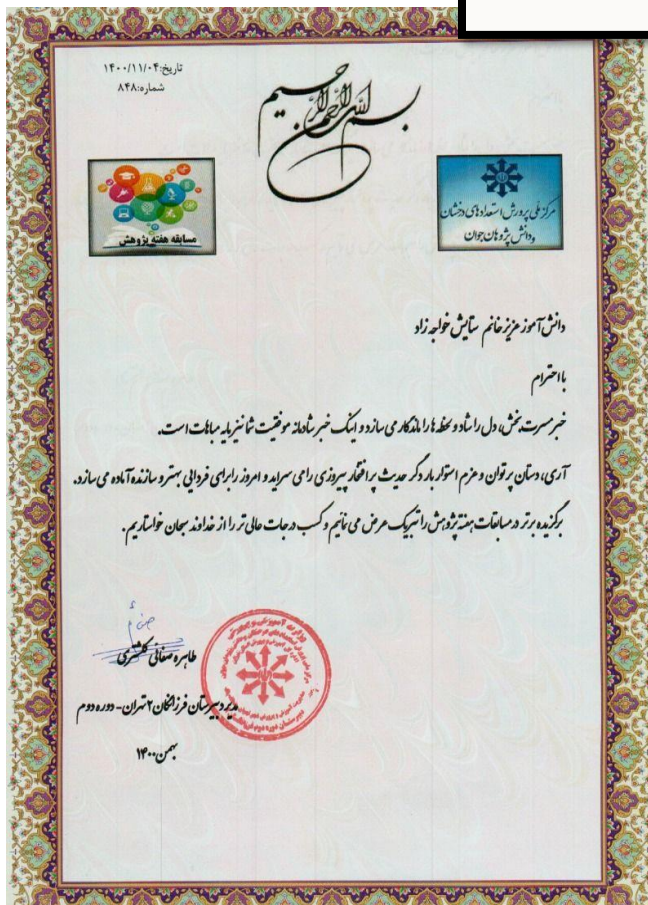 بسم الله الرحمن الرحیم
تاریخ:۱۴۰۰/۱۱/۰۴
شماره:۸۴۸
مرکز ملی پرورش استعدادهای درخشان
ودانش پژوهان جوان
مسابقه هفته پژوهش
دانش آموز عزیز خانم ستایش خواجه زاد
بااحترام
خبر مسرت بخش، دل را شاد و لحظه ها را ماندگار می سازد و اینک خبر شادمانه موفقیت شما نیز مایه مباهات است.
آری، دستان پر توان و عزم استوار بار دگر حدیث پر افتخار پیروزی را می سراید و امروز را برای فردایی بهتر و سازنده آماده می سازد.
برگزیده برتر در مسابقات هفته پژوهش را تبریک عرض می نمائیم و کسب درجات عالی تر را از خداوند سبحان خواستاریم.
طاهره صفائی گلشهری
مدیر دبیرستان فرزانگان ۲ تهران - دوره دوم
بهمن ۱۴۰۰